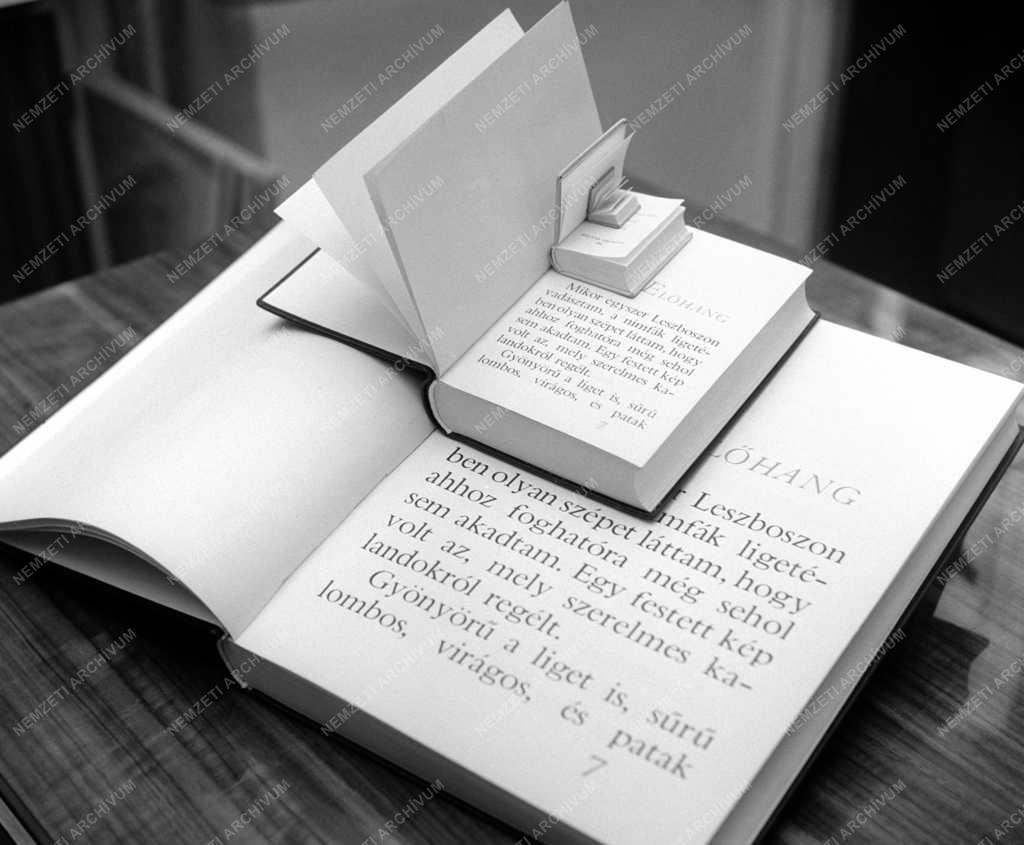 ELŐHANG
Mikor egyszer Leszboszon
vadásztam, a nimfák ligeté-
ben olyan szépet láttam, hogy
ahhoz foghatóra még sehol
sem akadtam. Egy festett kép
volt az, mely szerelmes ka-
landokról regélt.
Gyönyörű a liget is, sűrű
lombos, virágos, és patak
7
LŐHANG
r Leszboszon
mfák ligeté-
ben olyan szépet láttam, hogy
ahhoz foghatóra még sehol
sem akadtam. Egy festett kép
volt az, mely szerelmes ka-
landokról regélt.
Gyönyörű a liget is, sűrű
lombos, virágos, és patak
7
NEMZETI ARCHÍVUM